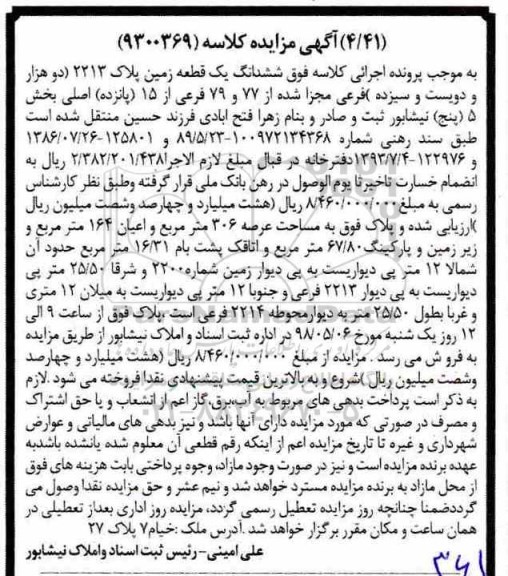 (۴/۴۱) آگهی مزایده کلاسه (۹۳۰۰۳۶۹)
به موجب پرونده اجرائی کلاسه فوق ششدانگ یک قطعه زمین پلاک ۲۲۱۳ (دو هزار
و دویست و سیزده )فرعی مجزا شده از ۷۷ و ۷۹ فرعی از ۱۵ (پانزده) اصلی بخش
۵ (پنج) نیشابور ثبت و صادر و بنام زهرا فتح ابادی فرزند حسین منتقل شده است
طبق سند رهنی شماره ۱۰۰۹۷۲۱۳۴۳۶۸-۸۹/۵/۲۳ و ۱۲۵۸۰۱-۱۳۸۶/۰۷/۲۶
و ۱۲۲۹۷۶-۱۳۹۳/۷/۴دفترخانه در قبال مبلغ لازم الاجرا۲/۳۸۲/۲۰۱/۴۳۸ ریال به
انضمام خسارت تاخیرتا یوم الوصول در رهن بانک ملی قرار گرفته وطبق نظر کارشناس
رسمی به مبلغ۸/۴۶۰/۰۰۰/۰۰۰ ریال (هشت میلیارد و چهارصد وشصت میلیون ریال
)ارزیابی شده و پلاک فوق به مساحت عرصه ۳۰۶ متر مربع و اعیان ۱۶۴ متر مربع و
زیر زمین و پارکینگ۶۷/۸۰ متر مربع و اتاقک پشت بام ۱۶/۳۱ متر مربع حدود آن
شمالا ۱۲ متر پی دیواریست به پی دیوار زمین شماره۲۲۰۰ و شرقا ۲۵/۵۰ متر پی
دیواریست به پی دیوار ۲۲۱۳ فرعی و جنوبا ۱۲ متر پی دیواریست به میلان ۱۲ متری
و غربا بطول ۲۵/۵۰ متر به دیوارمحوطه ۲۲۱۴ فرعی است ،پلاک فوق از ساعت ۹ الی
۱۲ روز یک شنبه مورخ ۹۸۰۵/۰۶ در اداره ثبت اسناد و املاک نیشابور از طریق مزایده
به فرو ش می رسد . مزایده از مبلغ ۸/۴۶۰/۰۰۰/۰۰۰ ریال (هشت میلیارد و چهارصد
وشصت میلیون ریال )شروع و به بالاترین قیمت پیشنهادی نقدا فروخته می شود .لازم
به ذکر است پرداخت بدهی های مربوط به آب،برق،گاز اعم از انشعاب و یا حق اشتراک
و مصرف در صورتی که مورد مزایده دارای آنها باشد و نیز بدهی های مالیاتی و عوارض
شهرداری و غیره تا تاریخ مزایده اعم از اینکه رقم قطعی آن معلوم شده یانشده باشدبه
عهده برنده مزایده است و نیز در صورت وجود مازاد، وجوه پرداختی بابت هزینه های فوق
از محل مازاد به برنده مزایده مسترد خواهد شد و نیم عشر و حق مزایده نقدا وصول می
گرددضمنا چنانچه روز مزایده تعطیل رسمی گردد، مزایده روز اداری بعداز تعطیلی در
همان ساعت و مکان مقرر برگزار خواهد شد .آدرس ملک :خیام۷ پلاک ۲۷
علی امینی- رئیس ثبت اسناد واملاک نیشابور
۳۶۱